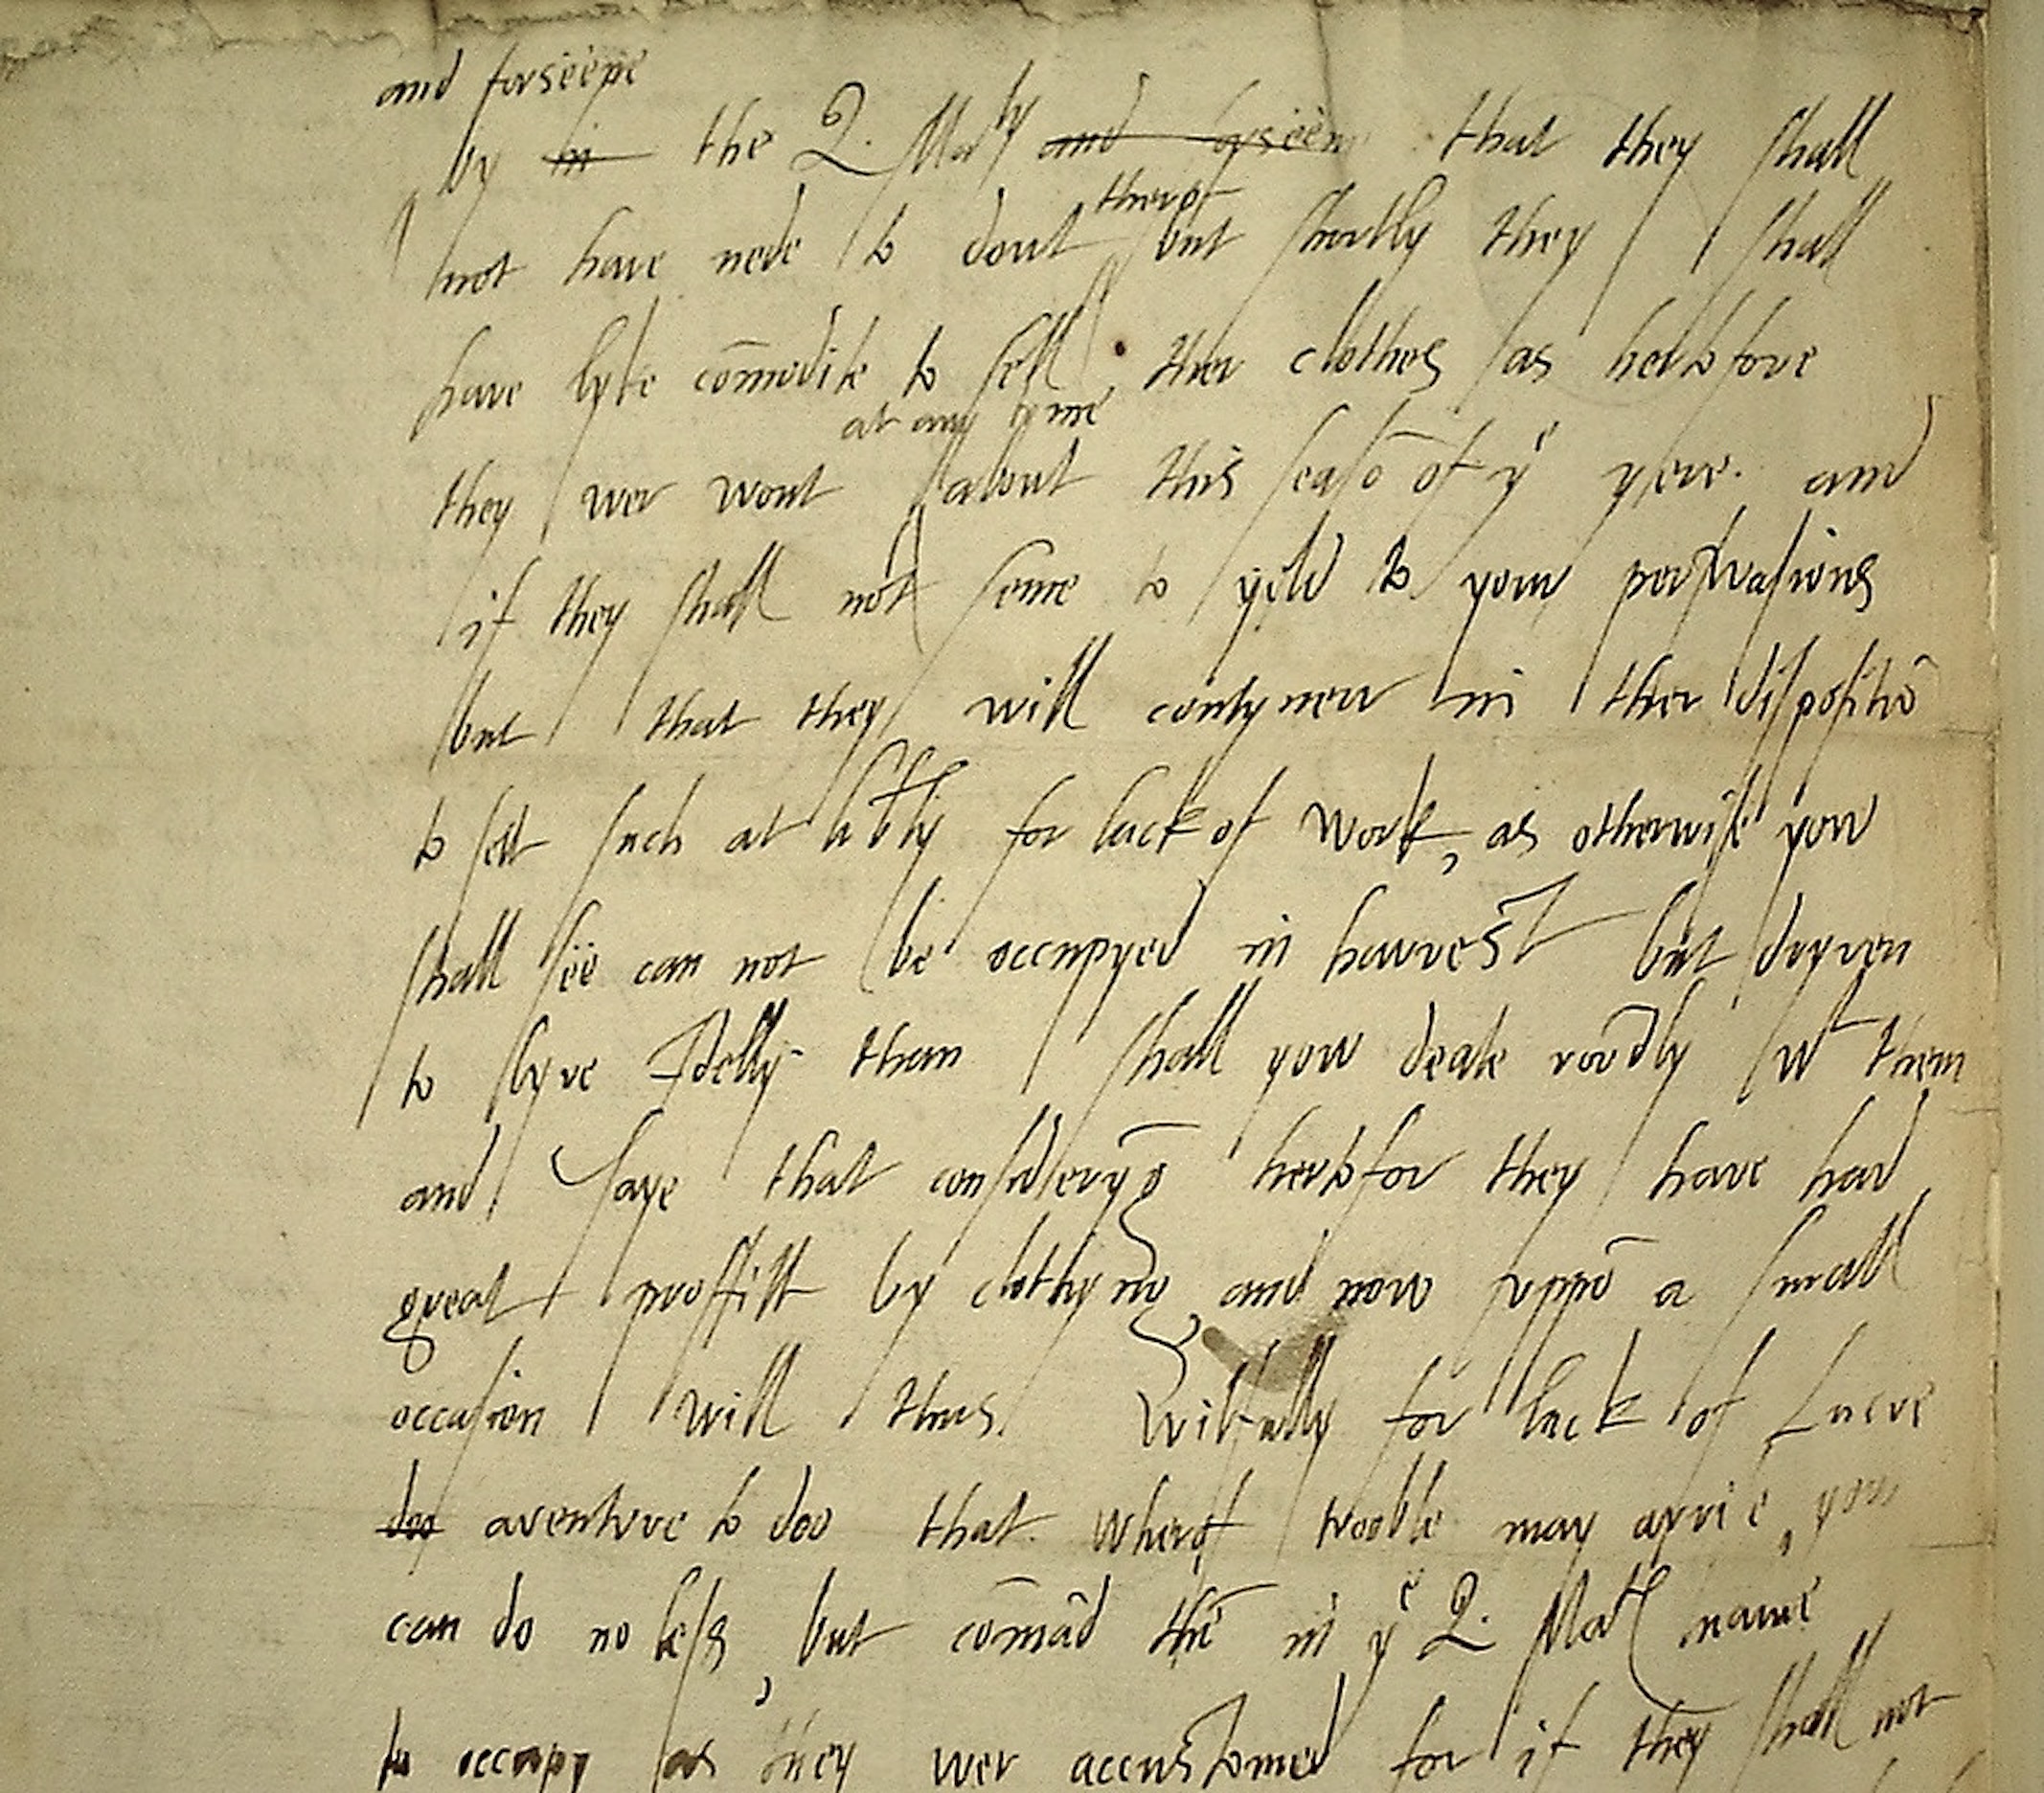 and forseene
by in the Q. Maty and forseene that they shall
therof
not have nede to dout but shortly they shall
have lyke cōmodite to sell ther clothes as hertofore
at any tyme
they wer wont about this seasō of yͤ yere. and
if they shall not seme to yeld to your perswasions
but that they will contynew in ther dispositiō
to sett such at libty for lack of work, as otherwise yow
shall see can not be occupyed in harvest but dryven
to lyve Idelly than shall yow deale roūdly wt them
and saye that consideryg̃ hertofor they have had
great proffitt by clothyng, and now uppō a small
occasion will thus wilfully for lack of Lucre
doo aventure to doo that wherof trooble may aryse, yow
can do no less, but cōmād thē in yͤ Q. Maty name
to occupy as they wer accustomed for if they shall not